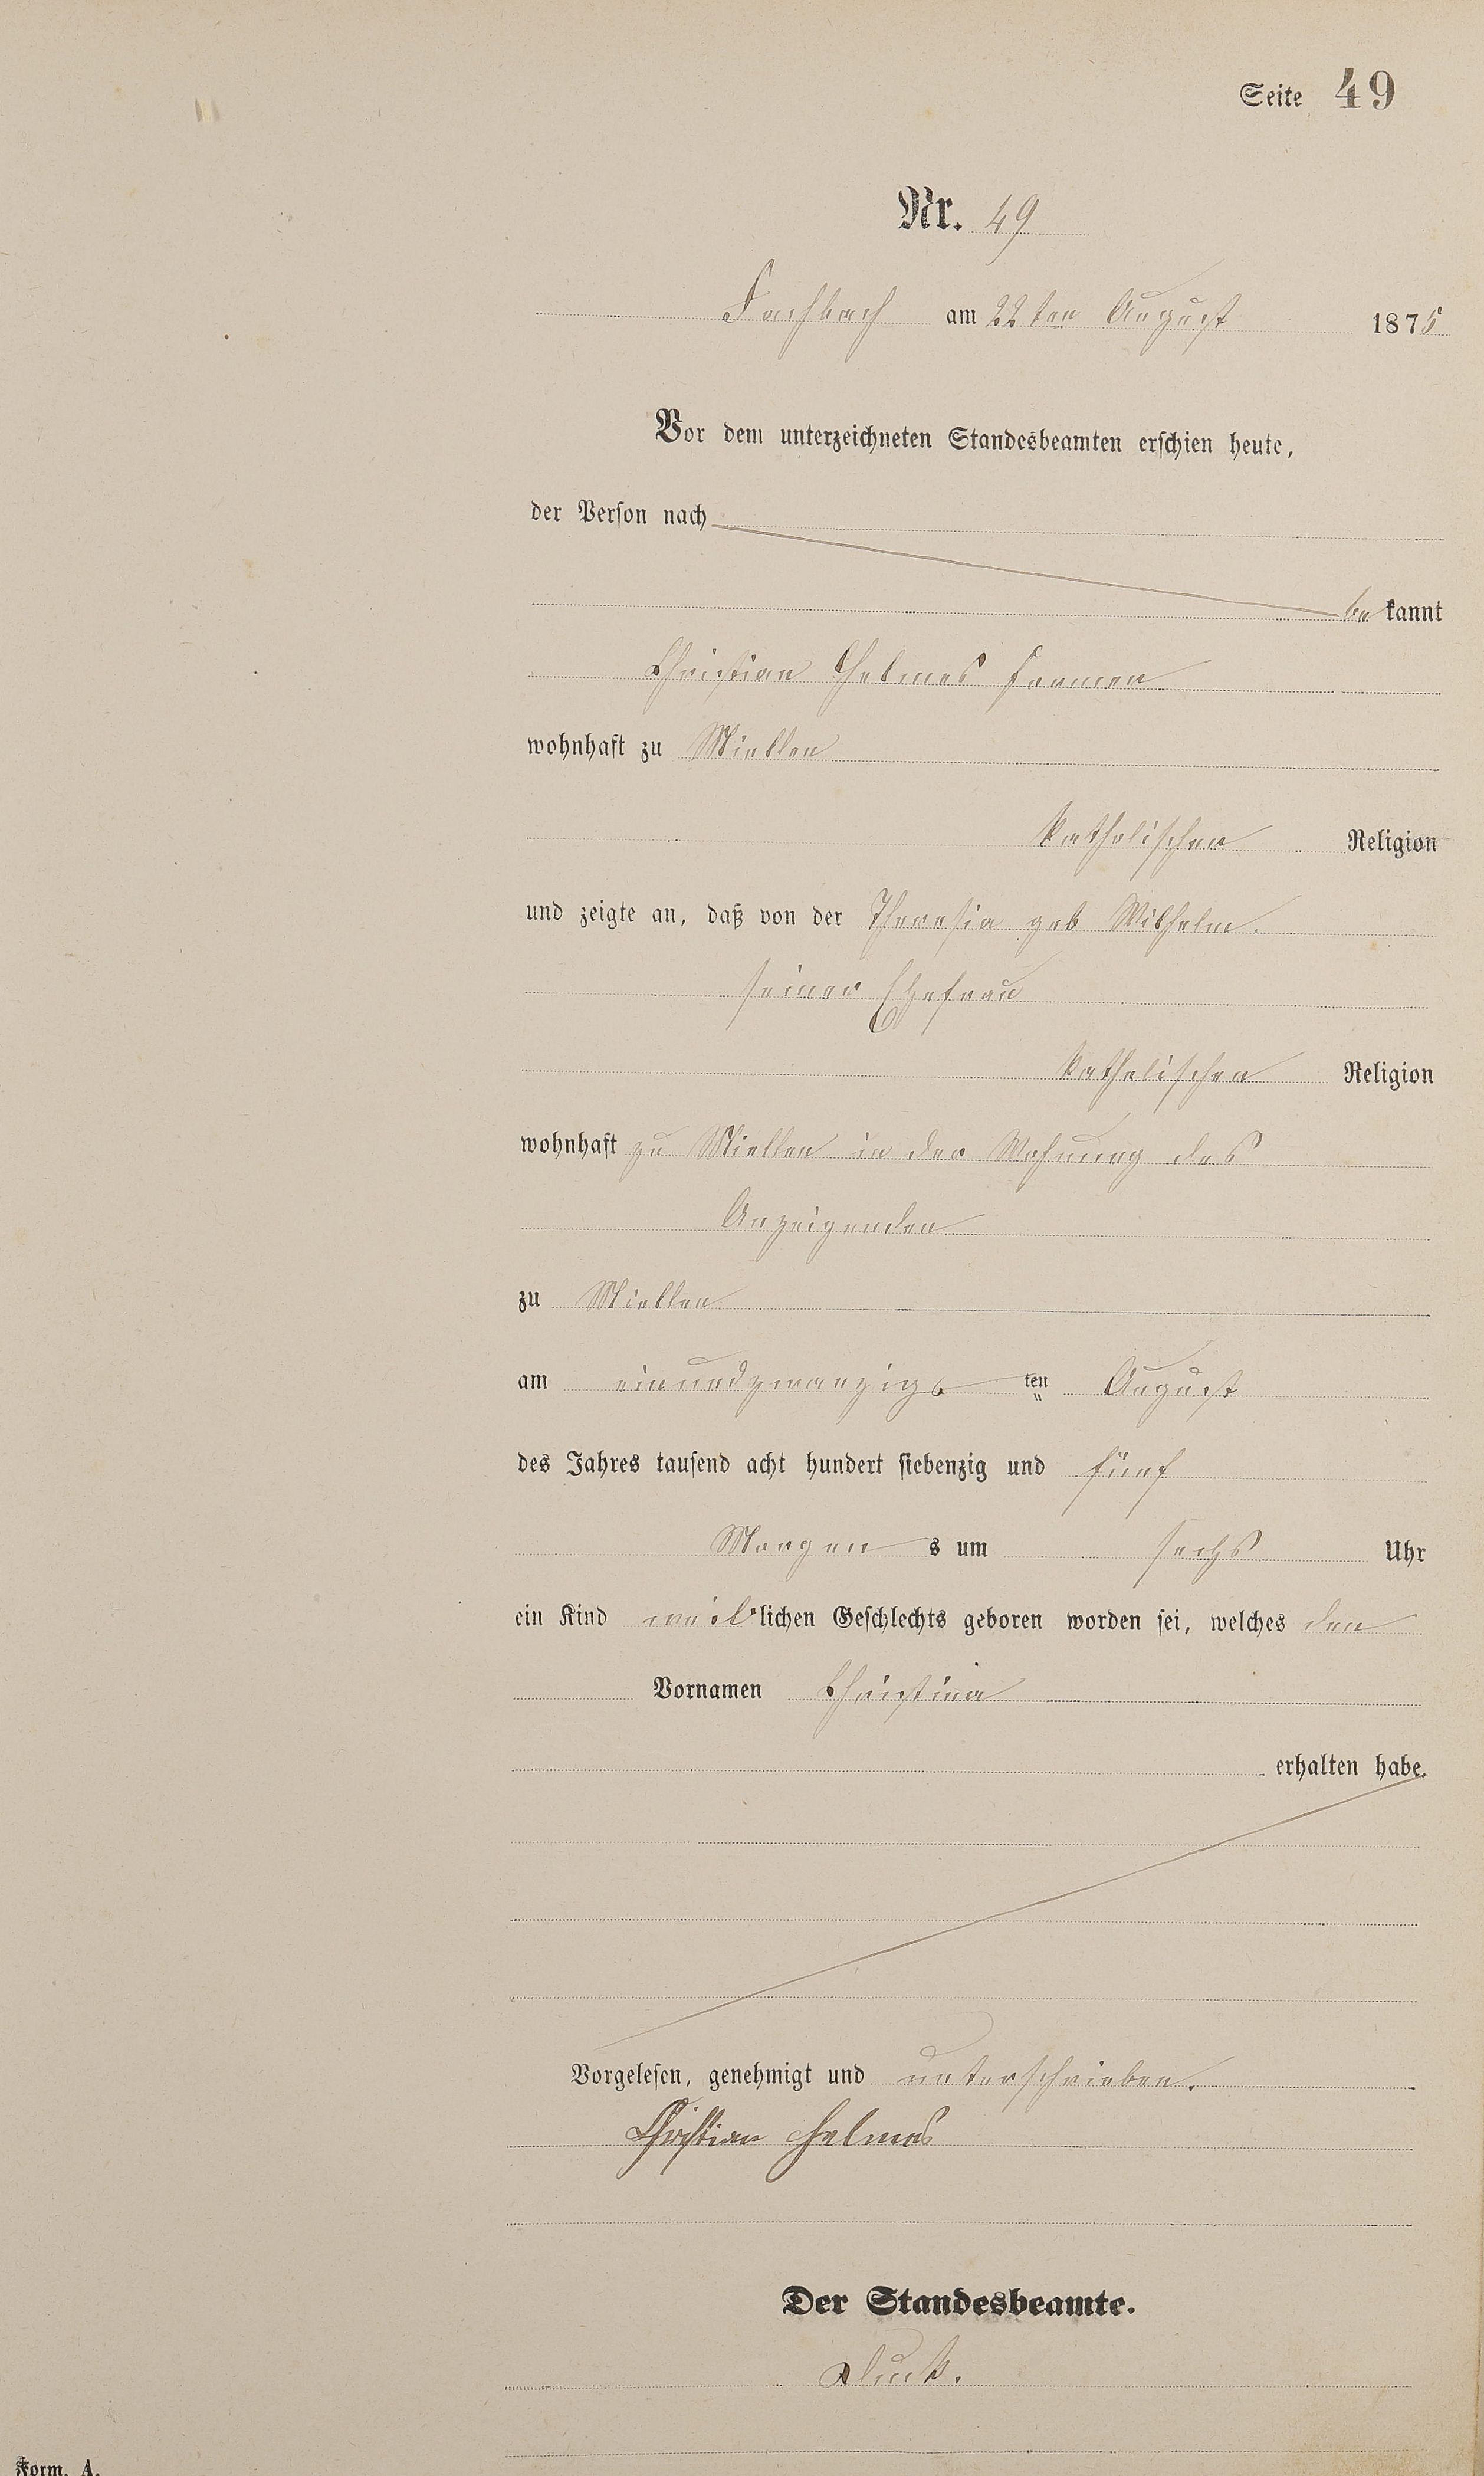 Seite 49
Nr. 49
Fachbach am 22ten August 1875
Vor dem unterzeichneten Standesbeamten erschien heute,
der Person nach
be kannt
Christian Helmes
wohnhaft zu Miellen
katholischen Religion
und zeigte an, daß von der Theresia geb Wilhelm.
seiner Ehefrau
katholischen Religion
wohnhaft zu Miellen in der Wohnung des
Anzeigenden
zu Miellen
am einundzwanzigs ten August
des Jahres tausend acht hundert siebenzig und fünf
Morgen s um sechs Uhr
ein Kind weiblichen Geschlechts geboren worden sei, welches den
Vornamen Christina
erhalten habe.
Vorgelesen, genehmigt und unterschrieben.
Christian Helmes
Der Standesbeamte.
Form. A.